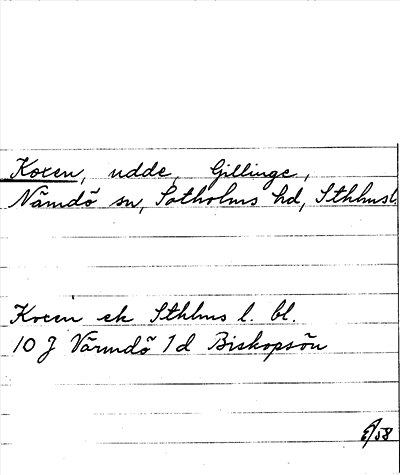 Koxen, udde, Gillinge,
Nämdö sn, Sotholms hd, Sthlmsl.
Koxen ek Sthlms l. bl.
10 J Värmdö 1d Biskopsön
/58